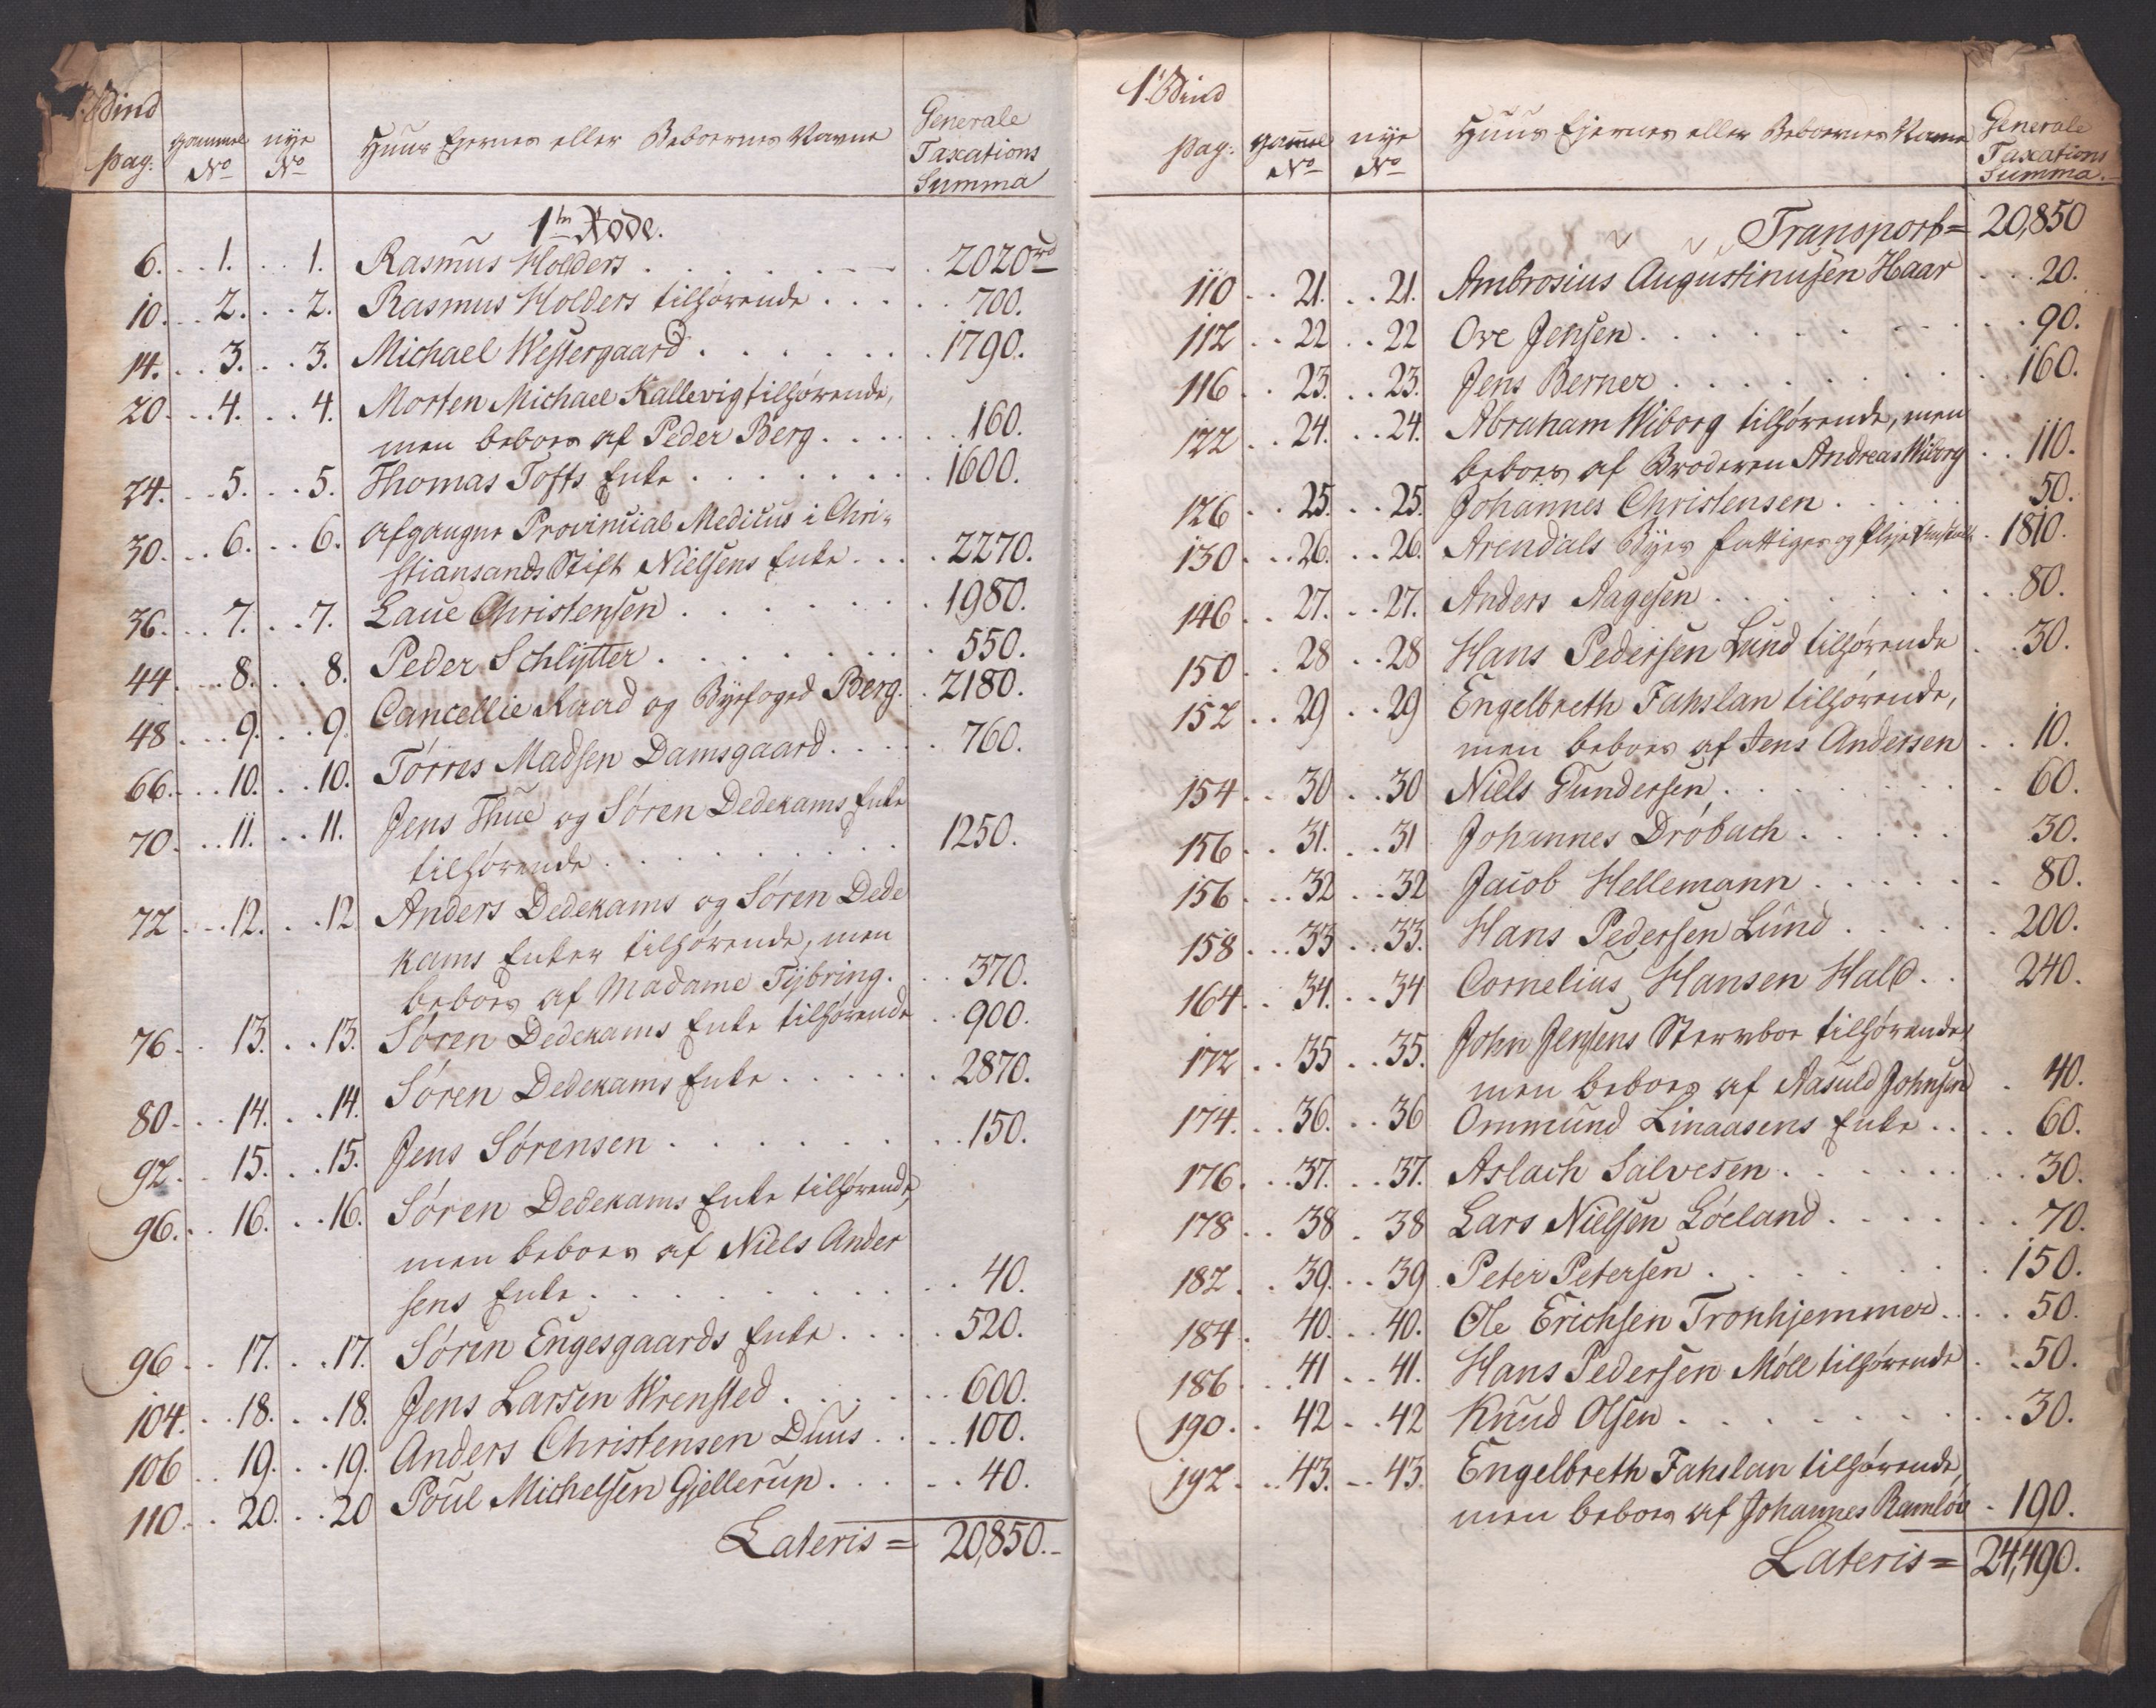 1. Bind
pag: gammel No nye No Huus Ejernes eller Beboernes Navne Generale Taxations Summa
1te Rode.
6. 1. 1. Rasmus Holders 2020 rd
10. 2. 2. Rasmus Holders tilhørende 700.
14. 3. 3. Michael Westergaard 1790.
20. 4. 4. Morten Michael Kallevig tilhørende,
men beboes af Peder Berg 160.
24. 5. 5. Thomas Tofts Enke 1600.
30. 6. 6. afgangne Provincial Medicus i Chri-
stiansands Stift Nielsens Enke 2270.
36. 7. 7. Laue Christensen 1980.
44. 8. 8. Peder Schlytter 550.
48 9. 9. Cancellie Raad og Byefoged Berg. 2180.
66. 10. 10. Tørres Madsen Damsgaard 760.
70. 11. 11. Jens Thue og Søren Dedekams Enke
tilhørende 1250.
72 12. 12 Anders Dedekams og Søren Dede
kams Enker tilhørende, men
beboes af Madame Tybring. 370.
76 13. 13. Søren Dedekams Enke tilhørende 900.
80. 14. 14. Søren Dedekams Enke 2870.
92. 15. 15. Jens Sørensen 150.
96. 16. 16. Søren Dedekams Enke tilhørende,
men beboes af Niels Ander
sens Enke 40.
96 17. 17. Søren Engesgaards Enke 520.
104. 18. 18. Jens Larsen Wrensted 600.
106 19. 19. Anders Christensen Duus 100.
110. 20. 20 Poul Michelsen Gjellerup 40.
Lateris = 20,850.
1. Bind
pag: gamel No nye No Huus Ejernes eller Beboernes Navne Generale Taxations Summa.
Transport = 20,850
110 21. 21. Ambrosius Augustinusen Haar 20.
112 22 22 Ove Jensen 90.
116 23. 23. Jens Berner 160.
122 24. 24. Abraham Wiborg tilhørende, men
beboes af Broderen Andreas Wiborg 110.
126 25. 25. Johannes Christensen 50.
130 26. 26. Arendals Byes fattiges og Pleje Anstalt 1810.
146 27. 27. Anders Aagesen 80.
150 28 28 Hans Pedersen Lund tilhørende 30.
152 29 29 Engelbreth Fahslan tilhørende,
men beboes af Jens Andersen 10.
154 30 30 Niels Gundersen 60.
156 31. 31 Johannes Drøbach 30.
156 32 32 Jacob Hellemann 80.
158 33 33. Hans Pedersen Lund 200.
164 34. 34 Cornelius Hansen Hald 240.
172 35 35. John Jensens Stervboe tilhørende,
men beboes af Aasuld Johnsen 40.
174. 36. 36 Ommund Linaasens Enke 60.
176. 37. 37. Aslach Salvesen 30.
178 38 38 Lars Nielsen Løeland 70.
182 39. 39 Peter Petersen 150.
184. 40. 40. Ole Erichsen Tronhjemmer 50.
186 41 41. Hans Pedersen Møll tilhørende 50.
190. 42 42 Knud Olsen 30.
192 43. 43. Engelbreth Fahslan tilhørende,
men beboes af Johannes Ramløv 190.
Lateris = 24,490.